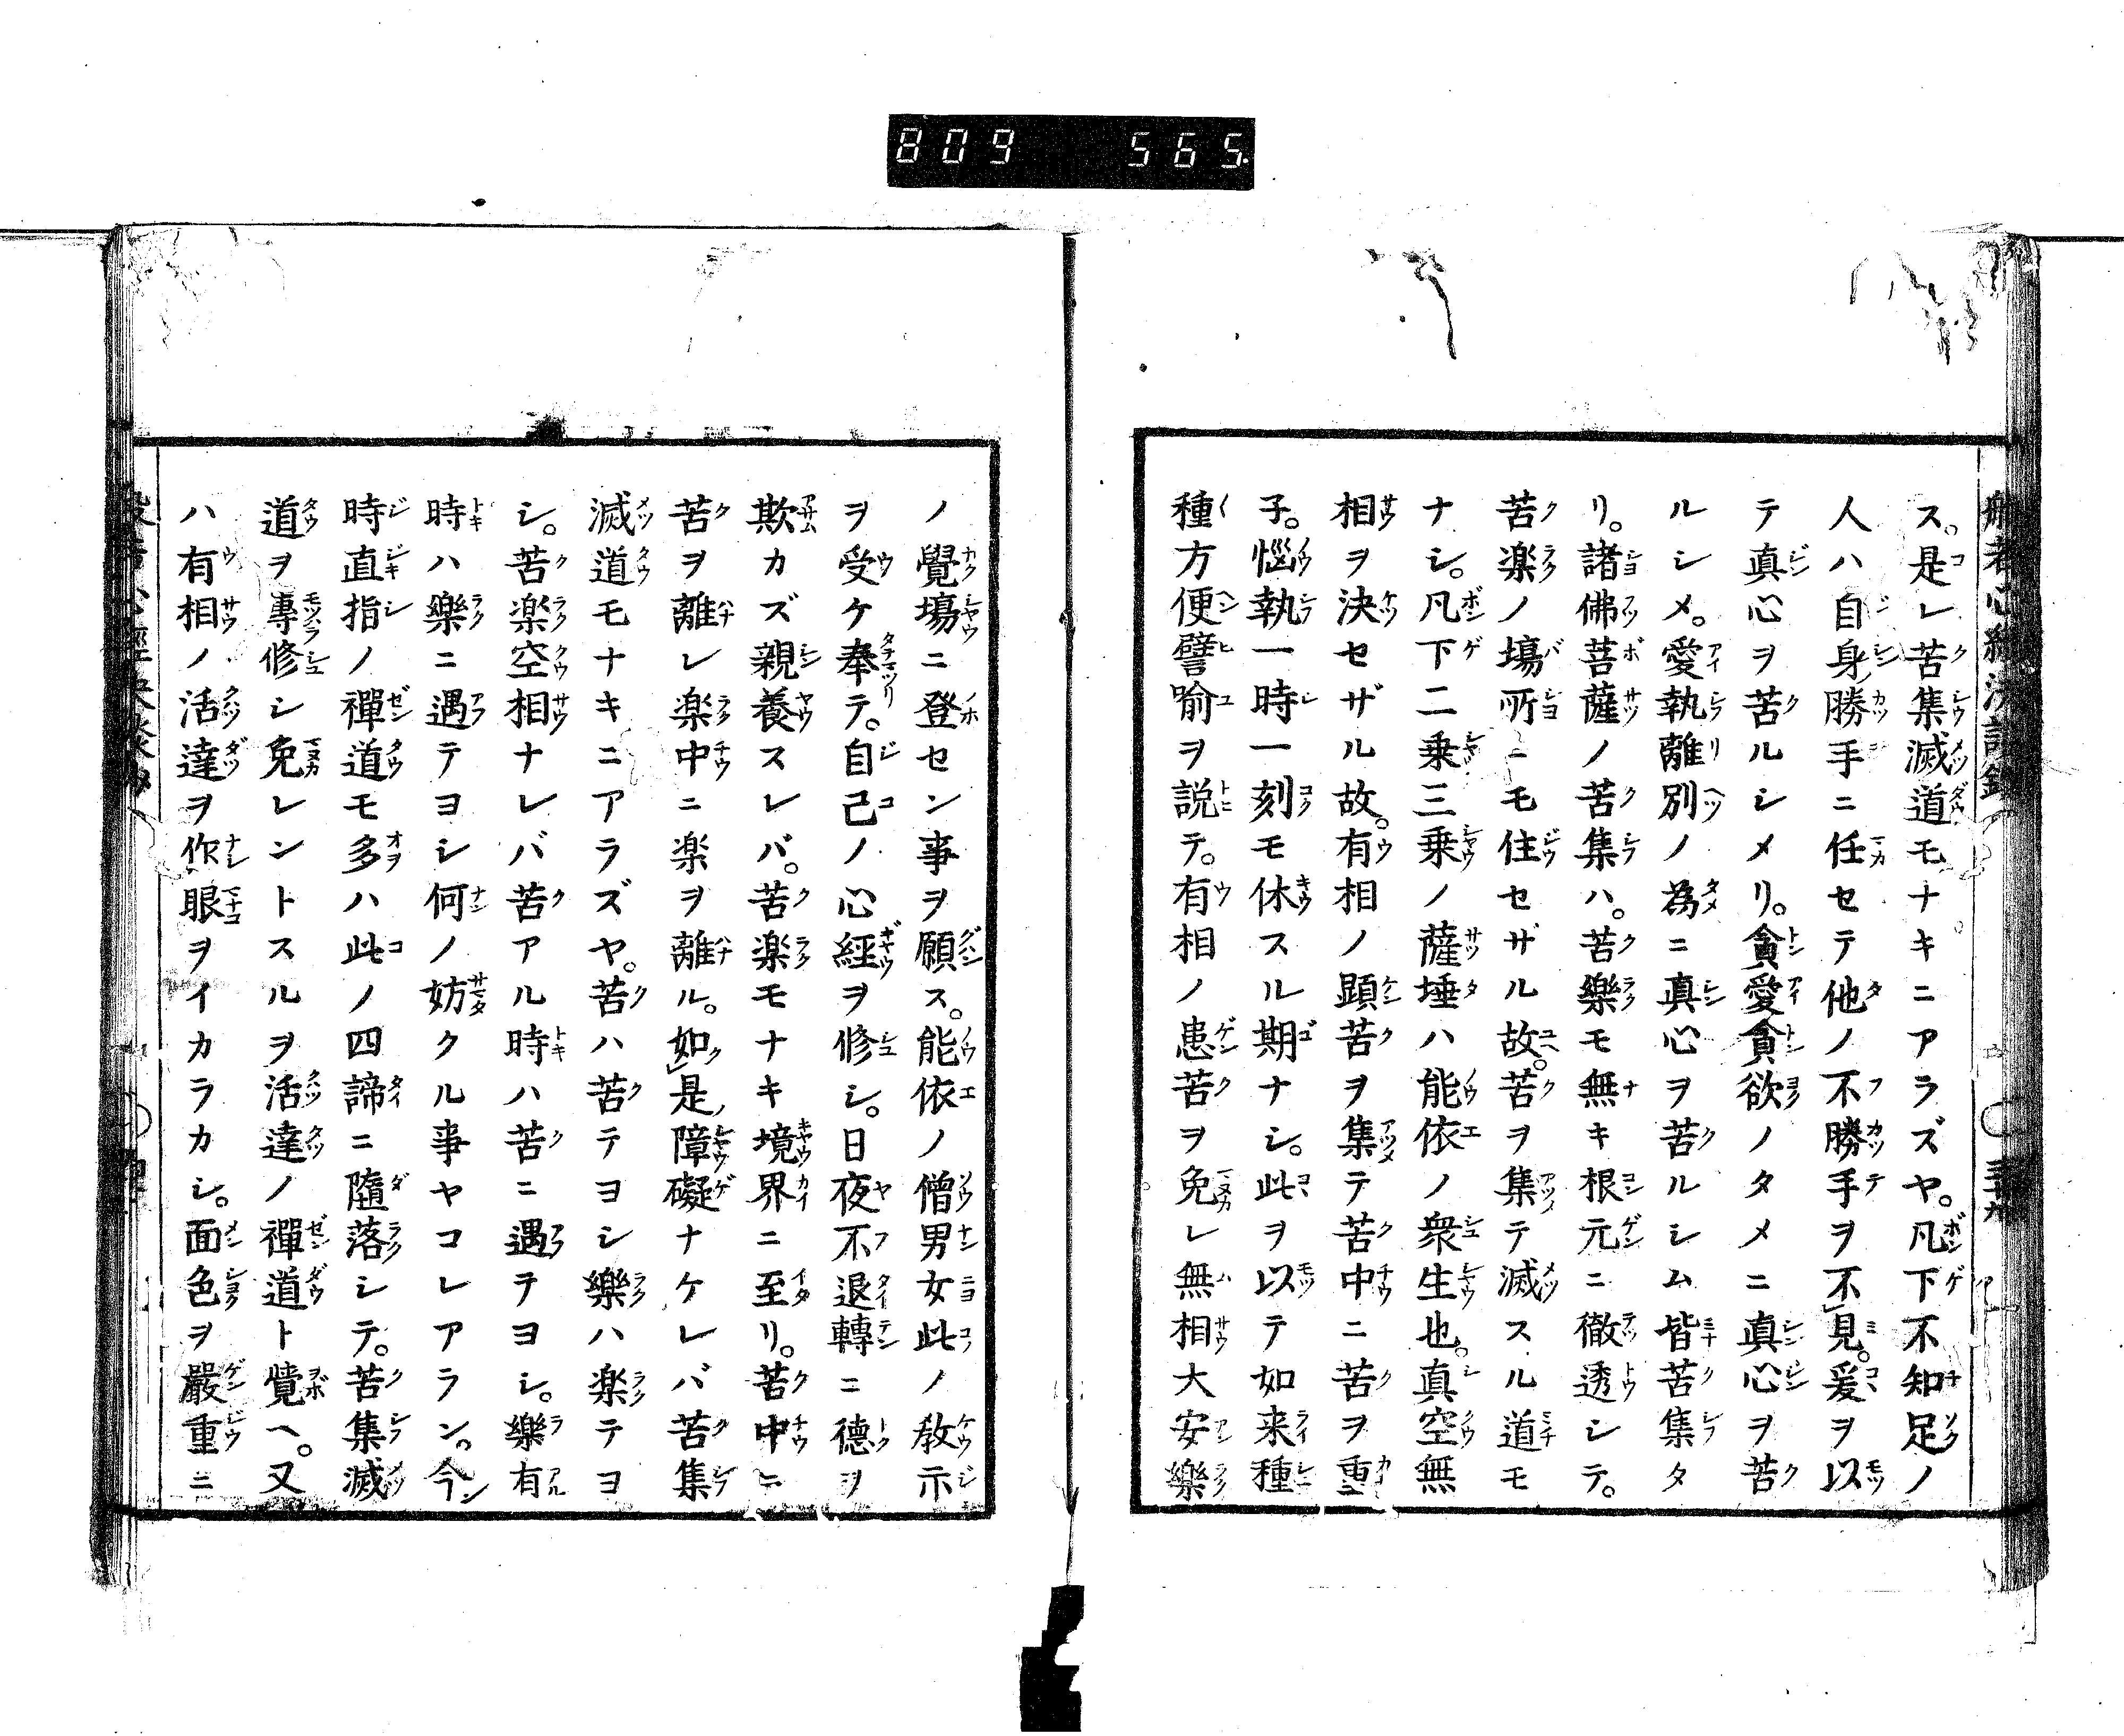 809 565
ス。是レ苦集滅道モナキニアラズヤ。凡下不知足ノ
人ハ自身勝手ニ任セテ他ノ不勝手ヲ不見。爰ヲ以
テ真心ヲ苦ルシメリ。貪愛貪欲ノタメニ真心ヲ苦
ルシメ。愛執離別ノ為ニ真心ヲ苦ルシム皆苦集タ
リ。諸佛菩薩ノ苦集ハ。苦樂モ無キ根元ニ徹透シテ。
苦楽ノ塲所ニモ住セザル故。苦ヲ集テ滅スル道モ
ナシ。凡下二乗三乗ノ薩埵ハ能依ノ衆生也。真空無
相ヲ決セザル故。有相ノ顕苦ヲ集テ苦中ニ苦ヲ重
子。惱執一時一刻モ休スル期ナシ。此ヲ以テ如来種
種方便譬喻ヲ説テ。有相ノ患苦ヲ免レ無相大安樂
ノ覺塲ニ登セン事ヲ願ス。能依ノ僧男女此ノ教示
ヲ受ケ奉テ。自己ノ心經ヲ修シ。日夜不退轉ニ德ヲ
欺カズ親養スレバ。苦楽モナキ境界ニ至リ。苦中ニ
苦ヲ離レ楽中ニ楽ヲ離ル。如是障礙ナケレバ苦集
滅道モナキニアラズヤ。苦ハ苦テヨシ樂ハ楽テヨ
シ。苦楽空相ナレバ苦アル時ハ苦ニ遇テヨシ。樂有
時ハ樂ニ遇テヨシ何ノ妨クル事ヤコレアラン。今
時直指ノ禪道モ多ハ此ノ四諦ニ墮落シテ。苦集滅
道ヲ專修シ免レントスルヲ活達ノ禪道ト覺ヘ。又
ハ有相ノ活達ヲ作眼ヲイカラカシ。面色ヲ嚴重ニ